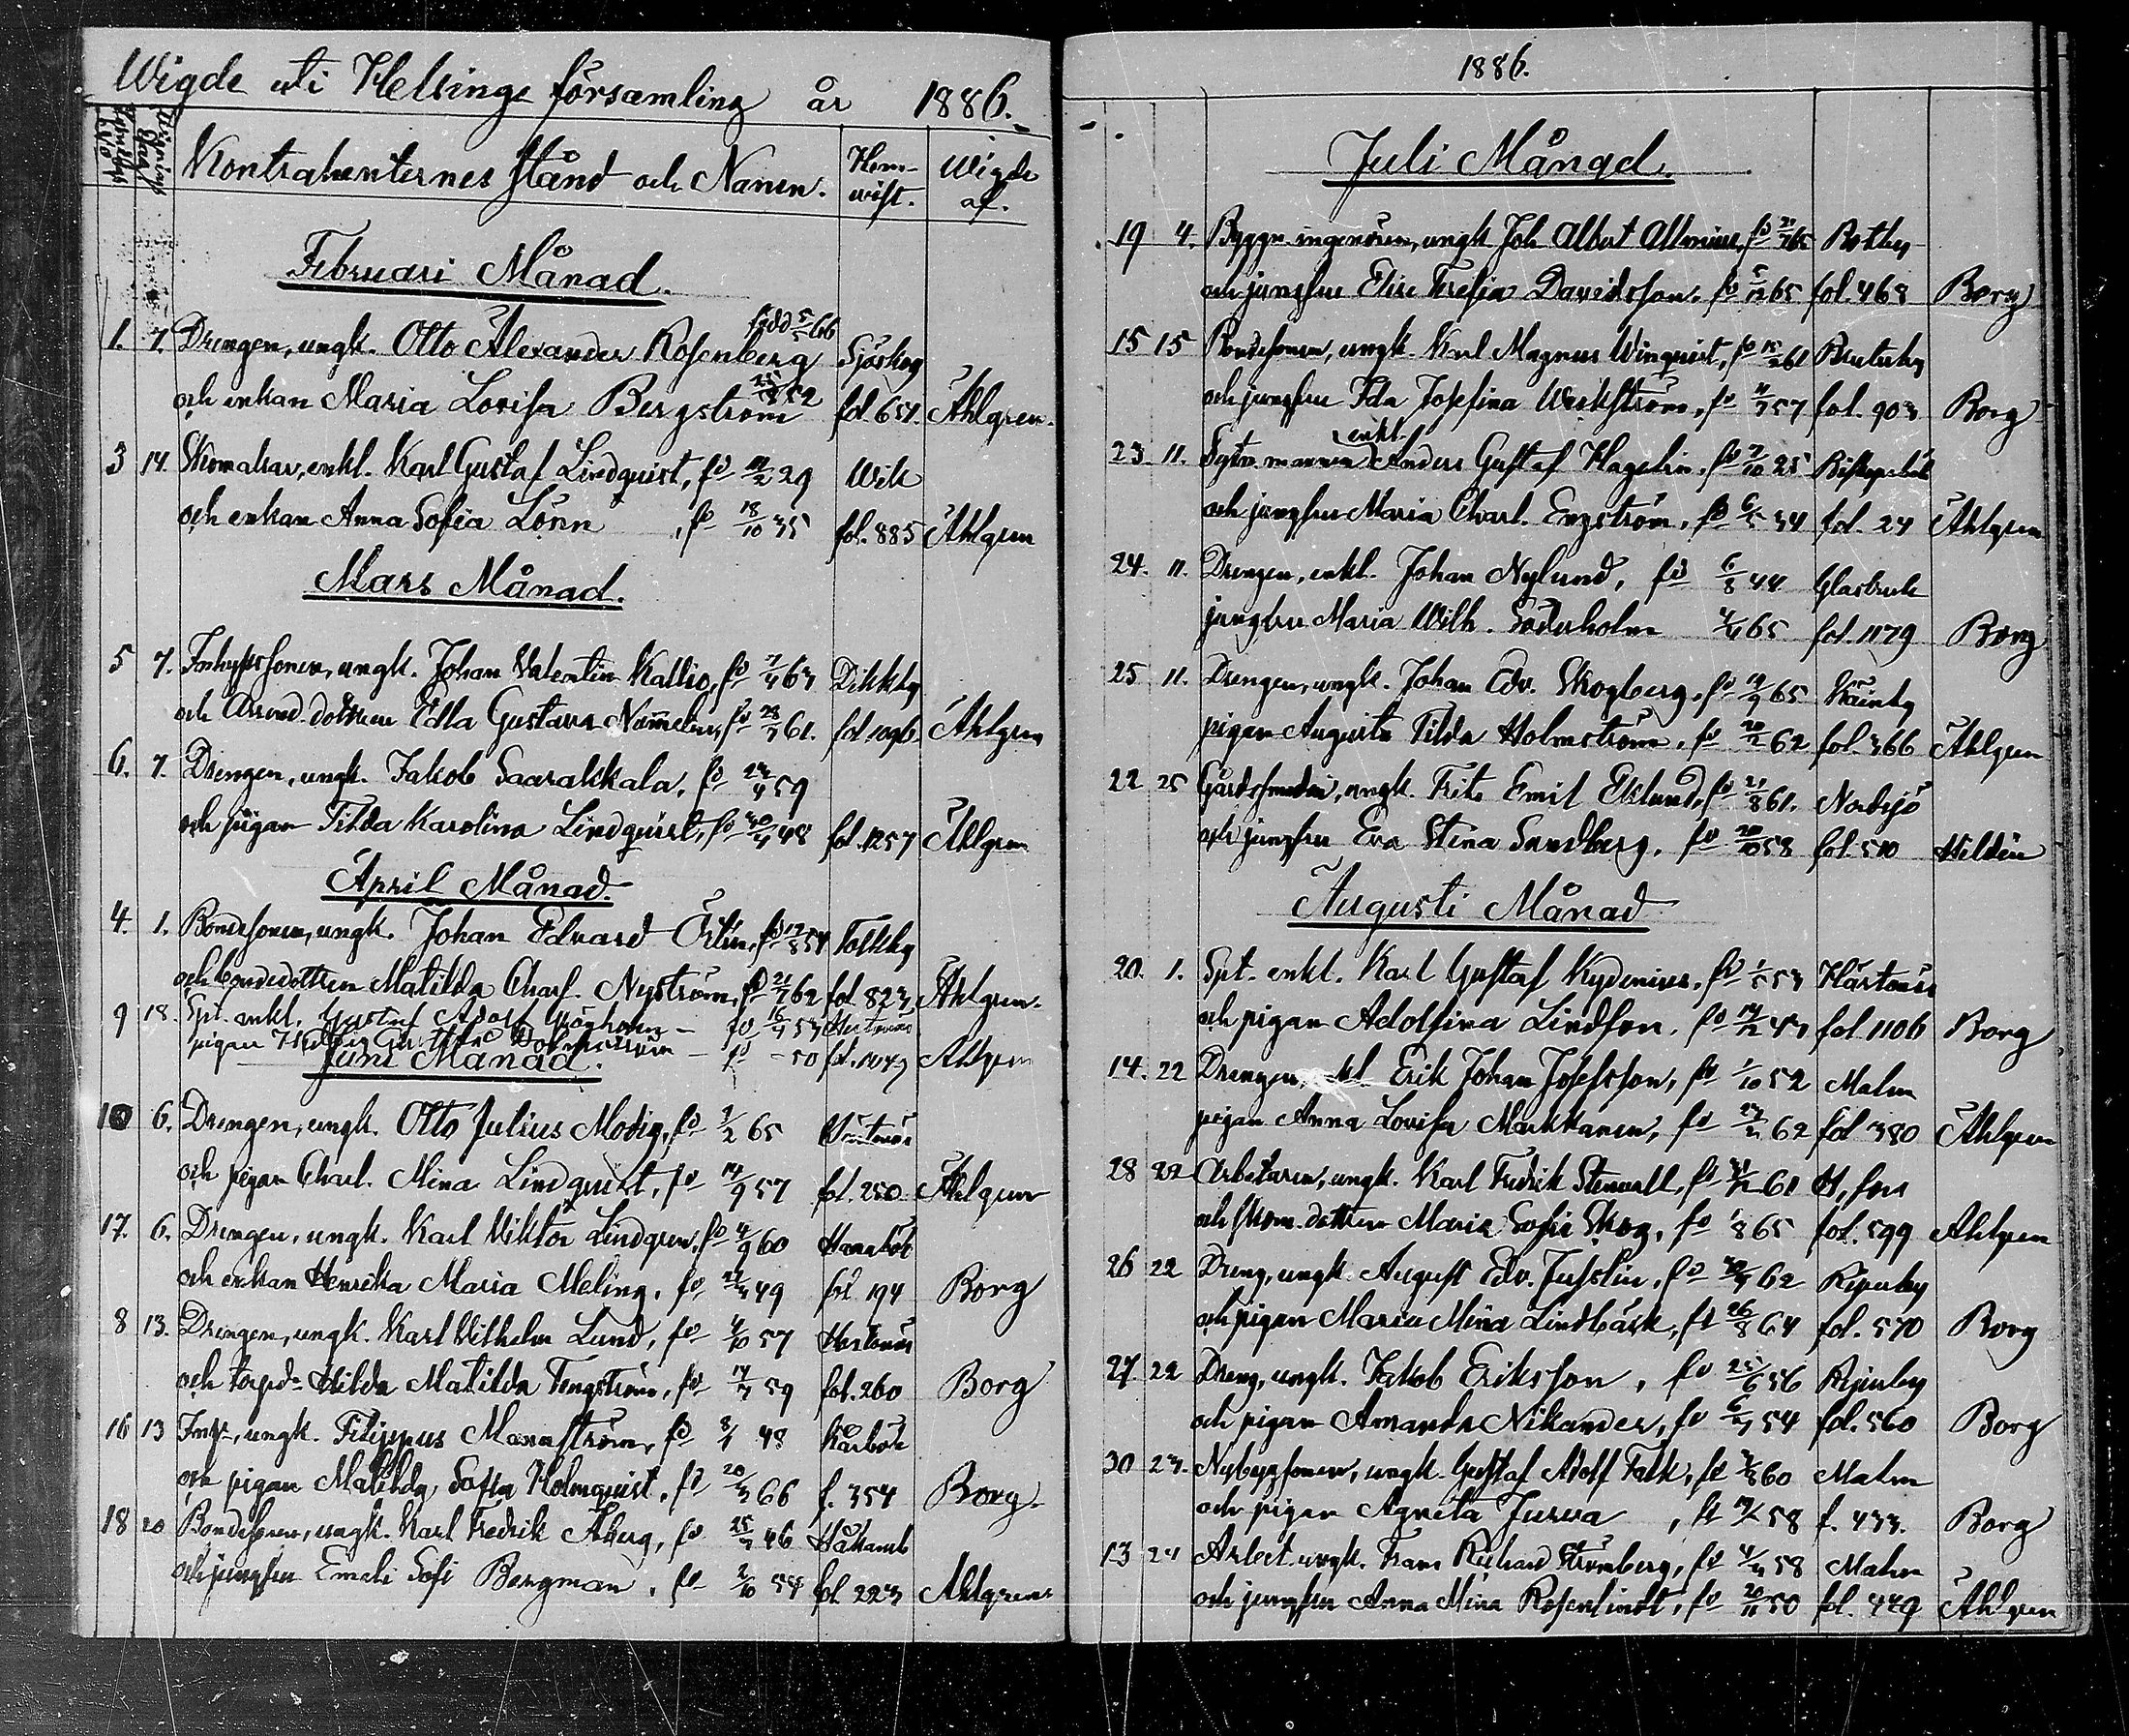 Wigde uti Helsinge församling år 1886.
Kontrahenternes stånd och Namn. Hem-wist. Wigde af.
Februari Månad.
född 5/5 66
1. 7. Drengen, ungk. Otto Alexander Rosenberg Sjöskog
och enkan Maria Lovisa Bergström 52 fol. 651. Åhlgren.
3 14. Skomakar, enkl. Karl Gustaf Lindquist, fö 29 Wik
och enkan Anna Sofia Lönn, fö 18/10 35 fol. 885 Åhlgren
Mars Månad.
5 7. ungk. Johan Valentin Kallio, fö 7/4 63 Dikkby
och Arrend. dottren Edla Gustava fö 28/3 61. fol 1096 Åhlgren
6. 7. Drengen, ungk. Jakob Saarakkala, fö 59
och pigan Tilda Karolina Lindquist, fö 30/4 48 fol. 1257 Åhlgren
April Månad.
4. 1. Bondesonen, ungk. Johan Edvard fö 54 Tolkby
och bondedottren Matilda Charl. Nyström, fö 21/7 62 fol 823 Åhlgren.
9 18. Spt. enkl. Gustaf Adolf fö 16/4 53 Hertonäs
pigan fö - 50 fol. 1049 Åhlgren
Juni Månad.
10 6. Drengen, ungk. Otto Julius Modig, fö 2/2 65
och pigan Charl. Mina Lindquist, fö 14/9 57 fol. 250 Åhlgren
17. 6. Drengen, ungk. Karl Viktor Lindgren, fö 4/9 60 Hanaböle
och enkan Henrika Maria Meling, fö 49 fol 194 Borg
8 13. Drengen, ungk. Karl Vilhelm Lund, fö 4/10 57 Hertonäs
och torpd. Hilda Matilda Tengström, fö 17/7 59 fol. 260 Borg
16 13 ungk. Filippus Mannström, fö 8/4 48 Kårböle
och pigan Matilda Sofia Holmquist, fö 20/3 66 f. 354 Borg.
18 20 Bondesonen, ungk. Karl Fredrik Åberg, fö 25/3 46 Håkansb
och jungfru Emeli Sofi Bergman, fö 2/10 54 fol. 223 Åhlgren
1886.
Juli Månad.
19 4. Byggn. ingeniören, ungk. Joh Albert fö 65 Botby
och jungfru Elise Teresia Davidsson, fö 5/12 65 fol. 468 Borg
15 15 Bondesonen, ungk. Karl Magnus Winquist, fö 61
och jungfru Ida Josefina Weckström, fö 57 fol. 903 Borg
enkl.
23 11. Sytn. mannen Anders Gustaf Hagelin, fö 7/10 25 Biskopsböle
och jungfru Maria Charl. Engström, fö 6/5 34 fol. 24 Åhlgren
24. 11. Drengen, enkl. Johan Nylund, fö 6/8 44 Glasbruk
jungfru Maria Wilh. Söderholm 65 fol. 1179 Borg
25 11. Drengen, ungk. Johan Edv. Skogberg, fö 19/9 65
pigan Augusta Tilda Holmström, fö 20/2 62 fol. 366 Åhlgren
22 25 Gårdssmeden, ungk. Frits Emil Eklund, fö 21/8 61. Nordsjö
och jungfru Eva Stina Sandberg, fö 20/10 58 fol. 510 Heldén
Augusti Månad
20. 1. Spt. enkl. Karl Gustaf Kydenius, fö 1/5 53 Hertonäs
och pigan Adolfina Lindfors, fö fol 1106 Borg
14. 22 Drengen, Erik Johan Josefsson, fö 1/10 52 Malm
pigan Anna Lovisa Markkanen, fö 62 fol 380 Åhlgren
28 22 Arbetaren, ungk. Karl Fredrik Stenvall, fö 61 H,fors
och skom. dottren Maria Sofia Skog, fö 1/8 65 fol. 599 Ahlgren
26 22 Dreng, ungk. August Edv. Jusslin, fö 62
och pigan Maria Mina Lindbäck, fö 26/8 64 fol. 570 Borg
27. 22 Dreng, ungk. Jakob Eriksson, fö 25/6 56
och pigan Amanda Nikander, fö 54 fol. 560 Borg
30 23. Nybygsonen, ungk. Gustaf Adolf Falk, fö 60 Malm
och pigan Agneta Jurva, fö 58 f. 433. Borg
13 24 Arbet. ungk. Frans Richard Strömberg, fö 58 Malm
och jungfru Anna Mina Rosenlindt, fö 20/11 50 fol. 449 Åhlgren